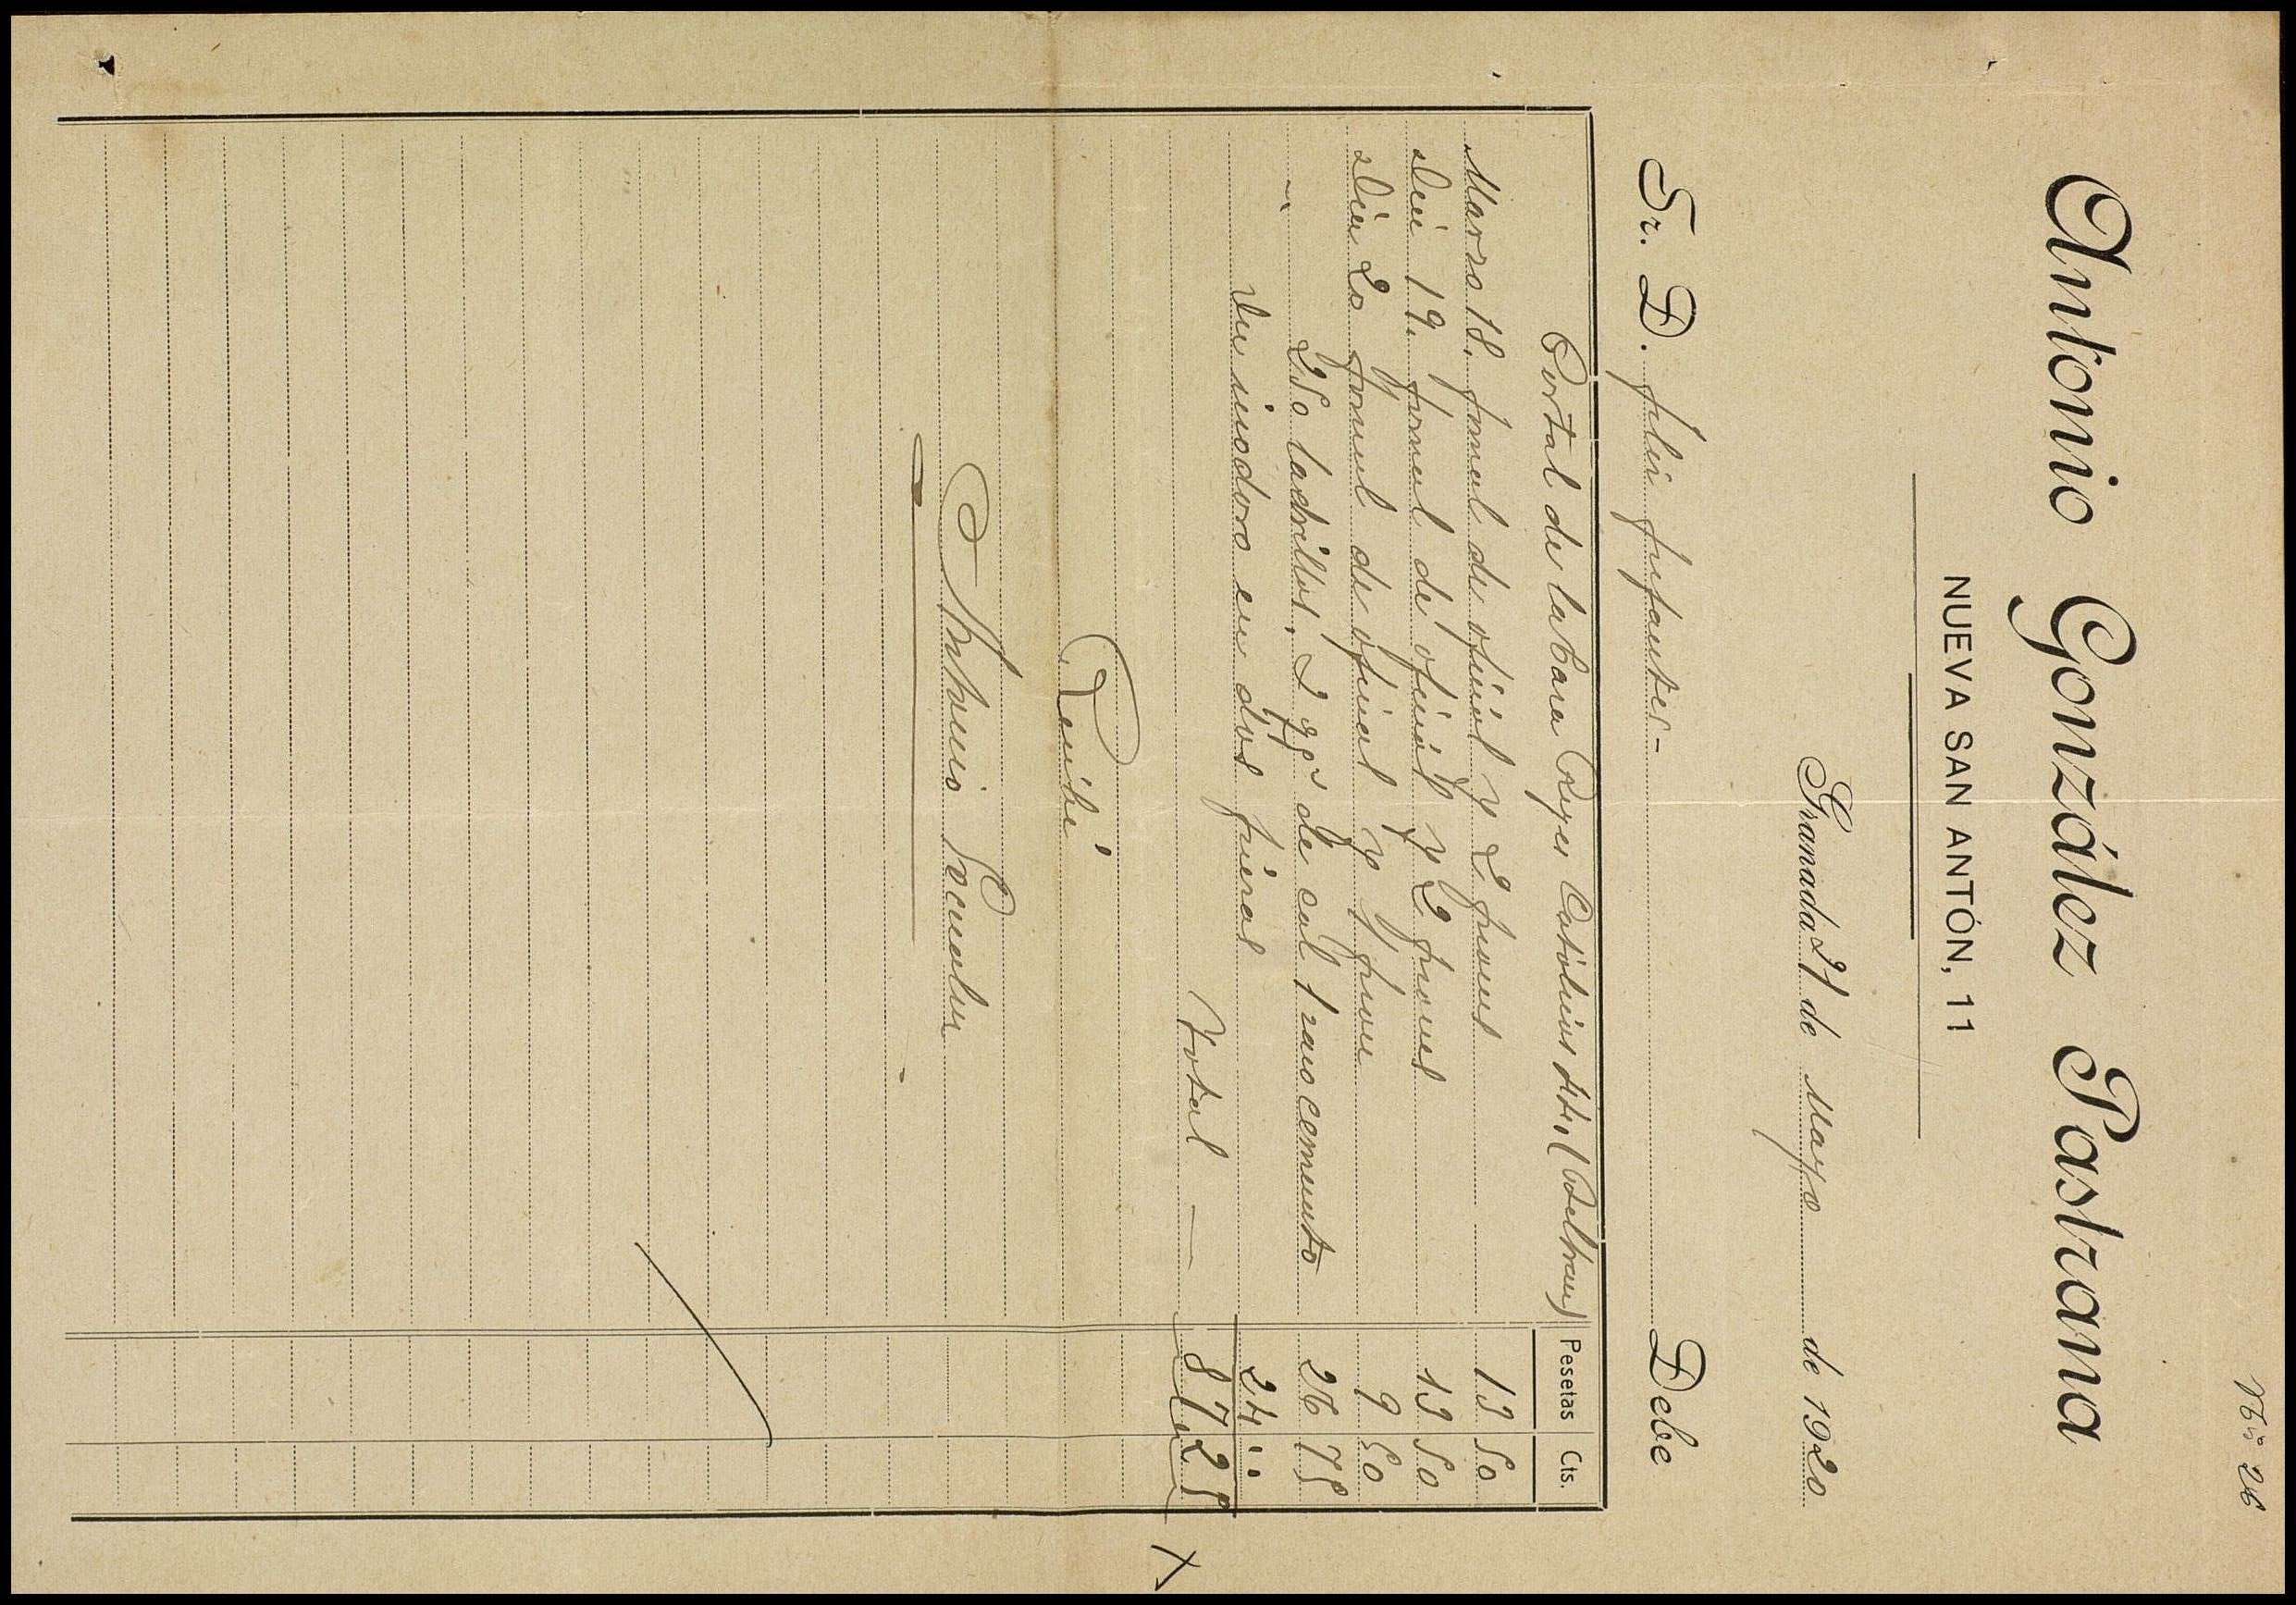 Nº 26
Antonio González Pastrana
NUEVA SAN ANTÓN, 11
Granada 21 de Mayo de 1920
Sr. D. Infantes - Debe
Pesetas Cts.
Portal de la Casa Reyes Católicos (Beltran)
Marzo 18. jornal de oficial y 2 peones 13 50
Dia 19. jornal de oficial y 2 peones 13 50
Dia 20 jornal de oficial y 1 peon 9 50
250 ladrillos, 2 de cal 1 saco cemento 26 75
Un inodoro en dos piezas 24 "
Total — 87 25
Recibi
Antonio
X